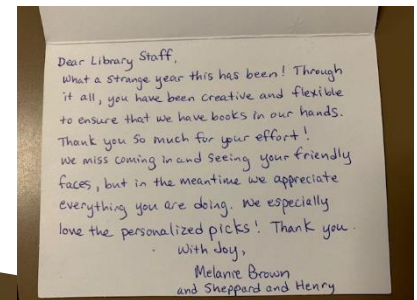 Dear Library Staff,
What a strange year this has been! Through
it all, you have been creative and flexible
to ensure that we have books in our hands.
Thank you so much for your effort!
We miss coming in and seeing your friendly
faces, but in the meantime we appreciate
everything you are doing. We especially
love the personalized picks! Thank you.
With Joy,
Melanie Brown
and Sheppard and Henry